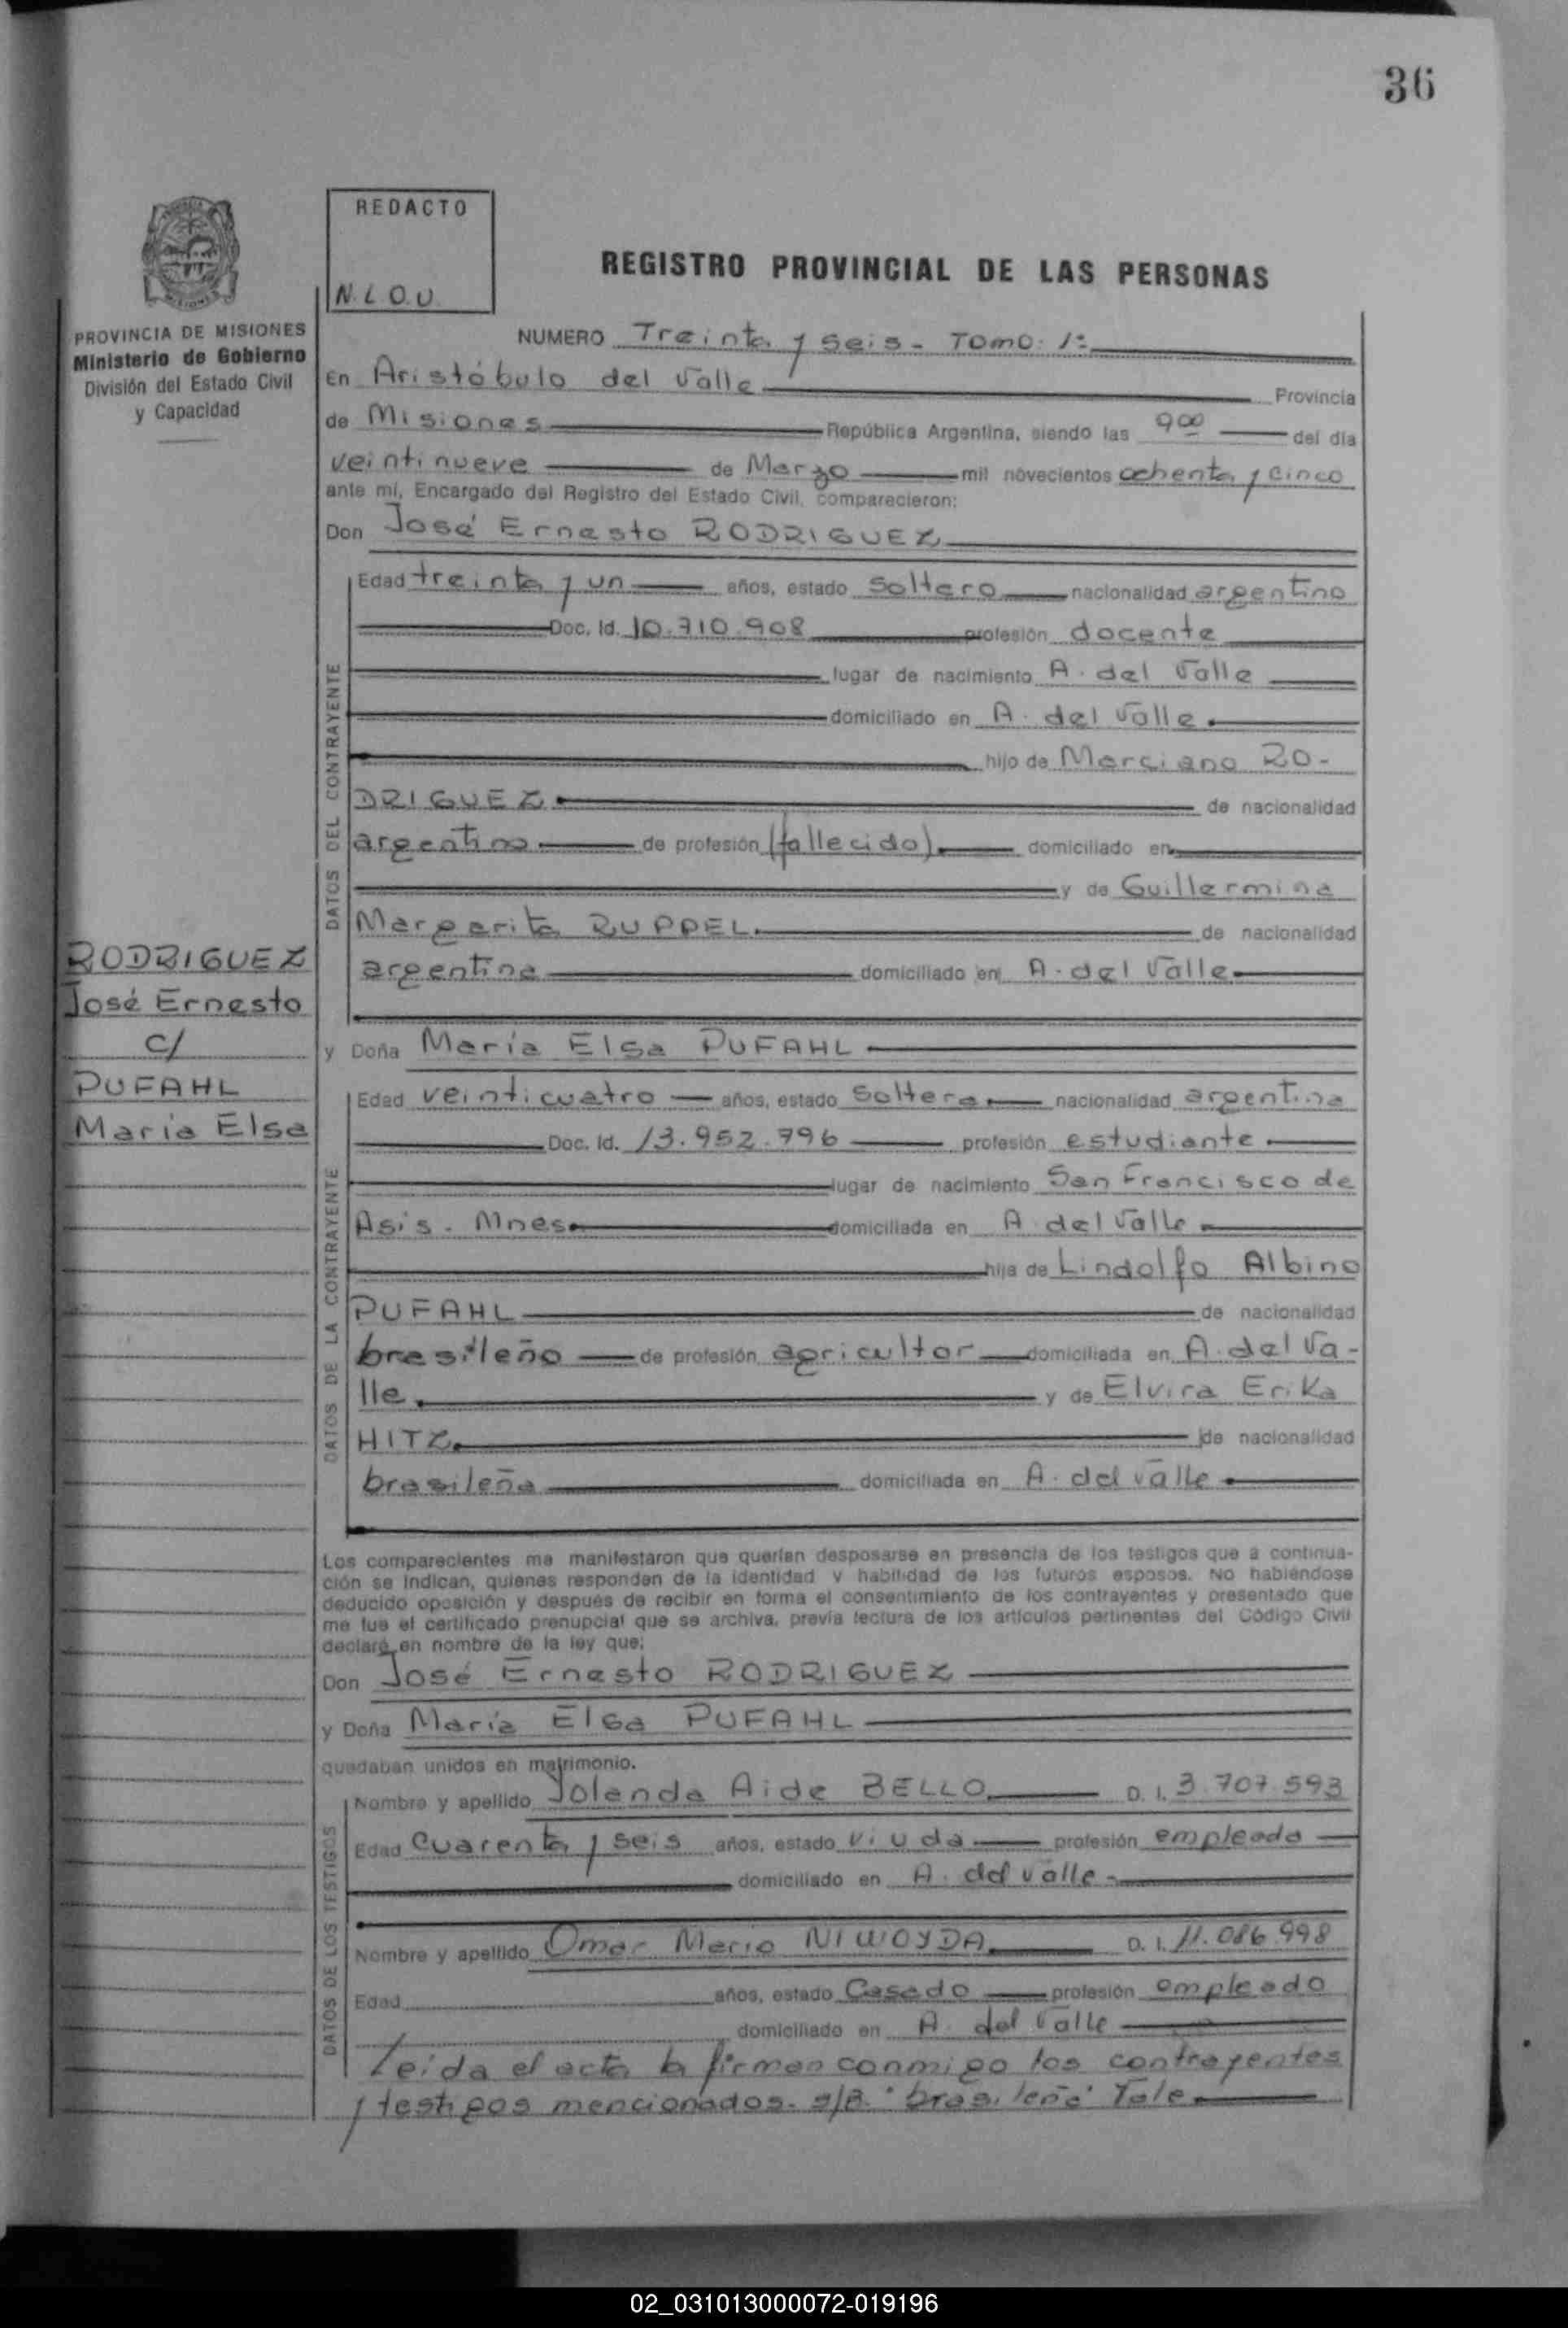 36
REDACTO
N.L.O.U.
REGISTRO PROVINCIAL DE LAS PERSONAS
PROVINCIA DE MISIONES
Ministerio de Gobierno
División del Estado Civil
y Capacidad
NUMERO Treinta y seis - TOMO: 1º
En Aristóbulo del Valle Provincia
de Misiones República Argentina, siendo las 9 00 del día
veintinueve de Marzo mil novecientos ochenta y cinco
ante mí, Encargado del Registro del Estado Civil, comparecieron:
Don José Ernesto RODRIGUEZ
DATOS DEL CONTRAYENTE
Edad treinta y un años, estado soltero nacionalidad argentino
Doc. Id. 10.710.908 profesión docente
lugar de nacimiento A. del Valle
domiciliado en A. del Valle.
hijo de Marciano RO-
DRIGUEZ de nacionalidad
argentino de profesión (fallecido) domiciliado en
y de Guillermina
Margarita RUPPEL. de nacionalidad
argentina domiciliado en A. del Valle
RODRIGUEZ
José Ernesto
c/
PUFAHL
María Elsa
y Doña María Elsa PUFAHL
DATOS DE LA CONTRAYENTE
Edad veinticuatro años, estado soltera nacionalidad argentina
Doc. Id. 13.952.796 profesión estudiante
lugar de nacimiento San Francisco de
Asis. Mnes. domiciliada en A. del Valle
hija de Lindolfo Albino
PUFAHL de nacionalidad
brasileño de profesión agricultor domiciliada en A. del Va-
lle. y de Elvira Erika
HITZ. de nacionalidad
brasileña domiciliada en A. del Valle
Los comparecientes me manifestaron que querían desposarse en presencia de los testigos que a continua-
ción se indican, quienes responden de la identidad y habilidad de los futuros esposos. No habiéndose
deducido oposición y después de recibir en forma el consentimiento de los contrayentes y presentado que
me fue el certificado prenupcial que se archiva, previa lectura de los artículos pertinentes del Código Civil
declaré en nombre de la ley que;
Don José Ernesto RODRIGUEZ
y Doña María Elsa PUFAHL
quedaban unidos en matrimonio.
DATOS DE LOS TESTIGOS
Nombre y apellido Yolanda Aide BELLO D. I. 3.707.593
Edad Cuarenta y seis años, estado viuda profesión empleada
domiciliado en A. del Valle
Nombre y apellido Omar Mario NIWOYDA D. I. 11.086.998
Edad años, estado Casado profesión empleado
domiciliado en A. del Valle
Leída el acta la firman conmigo los contrayentes
y testigos mencionados. s/R. "brasileña" Vale
02_031013000072-019196